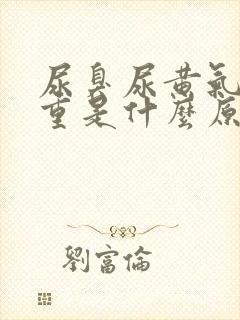 尿臭尿黄氣
重是什麼原
劉富倫